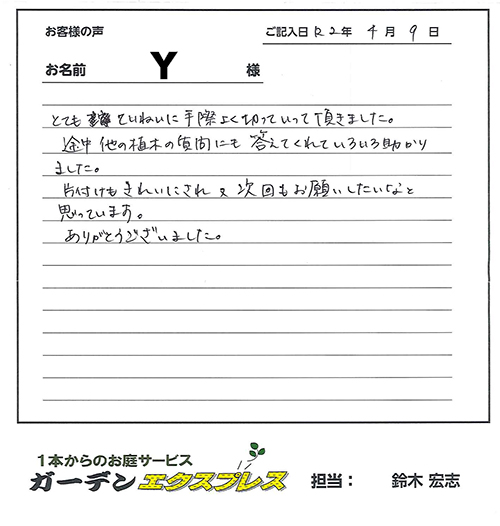 お客様の声 ご記入日 R2年 4月 9日
お名前 Y 様
とても ていねいに手際よく切っていって頂きました。
途中他の植木の質問にも答えてくれていろいろ助かり
ました。
片付けもきれいにされ又次回もお願いしたいなと
思っています。
ありがとうございました。
1本からのお庭サービス
ガーデンエクスプレス 担当： 鈴木 宏志